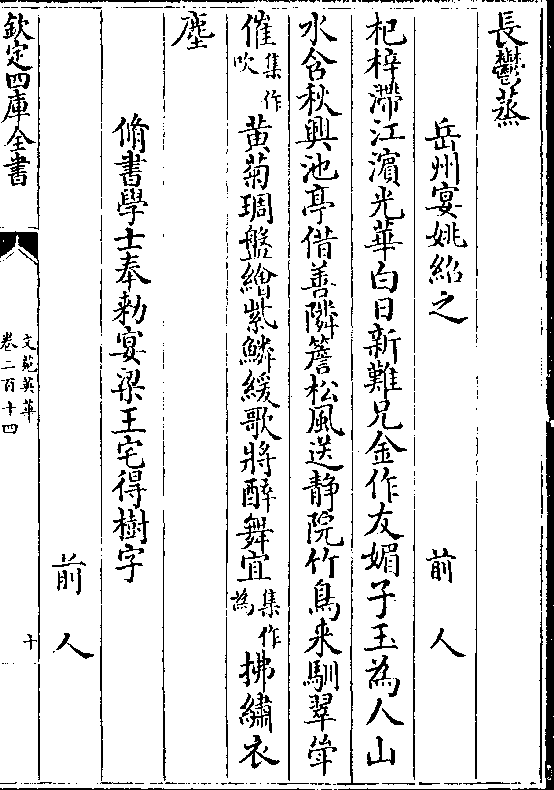 長鬱蒸
岳州宴姚紹之　前人
杞梓滯江濱光華白日新難兄金作友媚子玉為人山
水含秋興池亭借善隣簷松風送静院竹鳥来馴翠斚
催集作吹黄菊琱盤繪紫鱗緩歌將醉舞宜集作為拂繡衣
塵
脩書學士奉勅宴梁王宅得樹字
前人
欽定四庫全書
文苑英華
卷二百十四
十